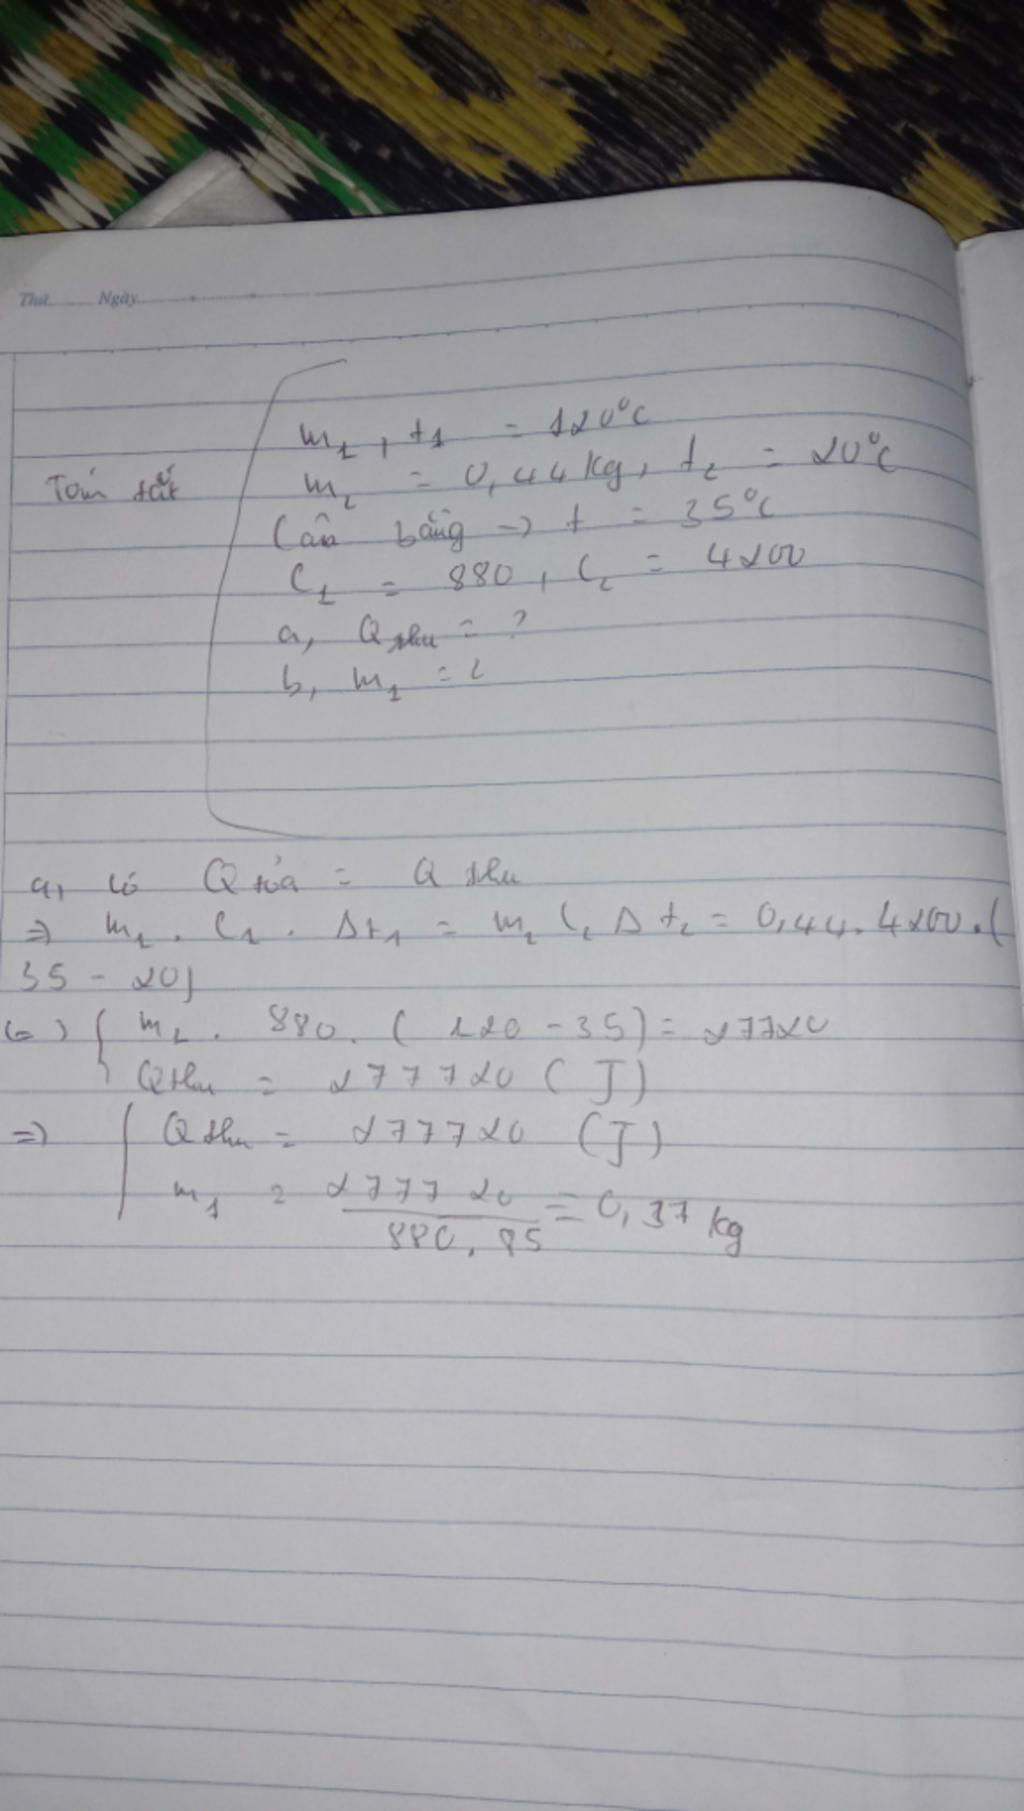 Thứ Ngày
m₁, t₁ = 120°C
Tóm tắt m₂ = 0,44kg, t₂ = 20°C
Cân bằng → t = 35°C
C₁ = 880, C₂ = 4200
a, Q thu = ?
b, m₁ = ?
a, Có Q tỏa = Q thu
=> m₁. C₁. Δt₁ = m₂ C₂ Δt₂ = 0,44. 4200. (
35 - 20)
(=) { m₁. 880. (120 - 35) = 27720
Q thu = 277720 (J)
=> { Q thu = 277720 (J)
m₁ = 277720 / 880.85 = 0,37 kg